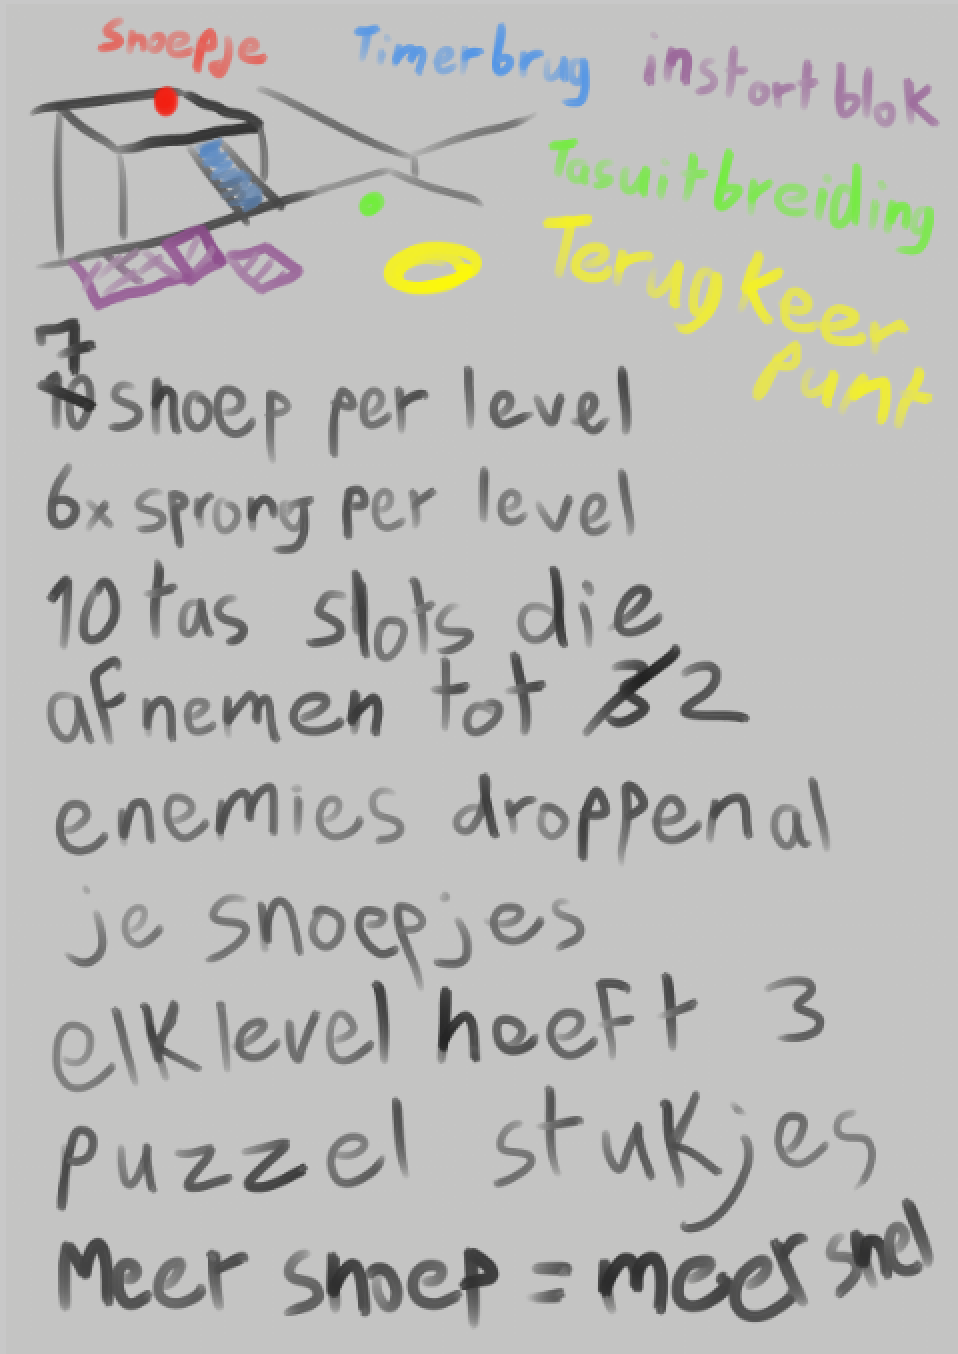 Snoepje
Timerbrug
instort blok
Tasuitbreiding
Terug Keer
punt
7
10 snoep per level
6x sprong per level
10 tas slots die
afnemen tot 3 2
enemies droppen al
je snoepjes
elk level heeft 3
puzzel stukjes
Meer snoep = meer snel